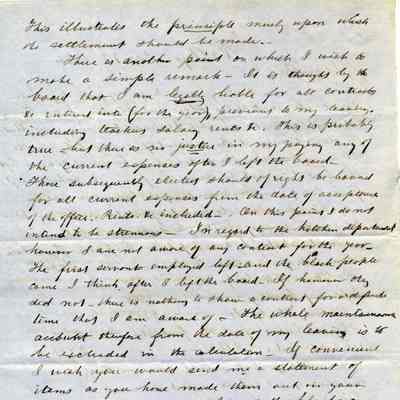 This illustrates the principle merely upon which
the settlement should be made.-
There is another point on which I wish to
make a simple remark - It is thought by the
board that I am legally liable for all contracts
&c entered into (for the year) previous to my leaving.
including teachers salary rents &c. This is probably
true - but there is no justice in my paying any of
the current expenses after I left the board.
Those subsequently elected should of right be bound
for all current expenses from the date of acceptance
of the office. Rents &c included -. On this point I do not
intend to be strenuous - In regard to the kitchen department
however I am not aware of any contract for the year.
The first servants employed left - and the black people
came I think after I left the board - If however they
did not - there is nothing to show a contract for a definite
time that I am aware of - The whole maintainance
account therefore from the date of my leaving is to
be excluded in the calculation - If convenient
I wish you would send me a statement of
items as you have made them out in your